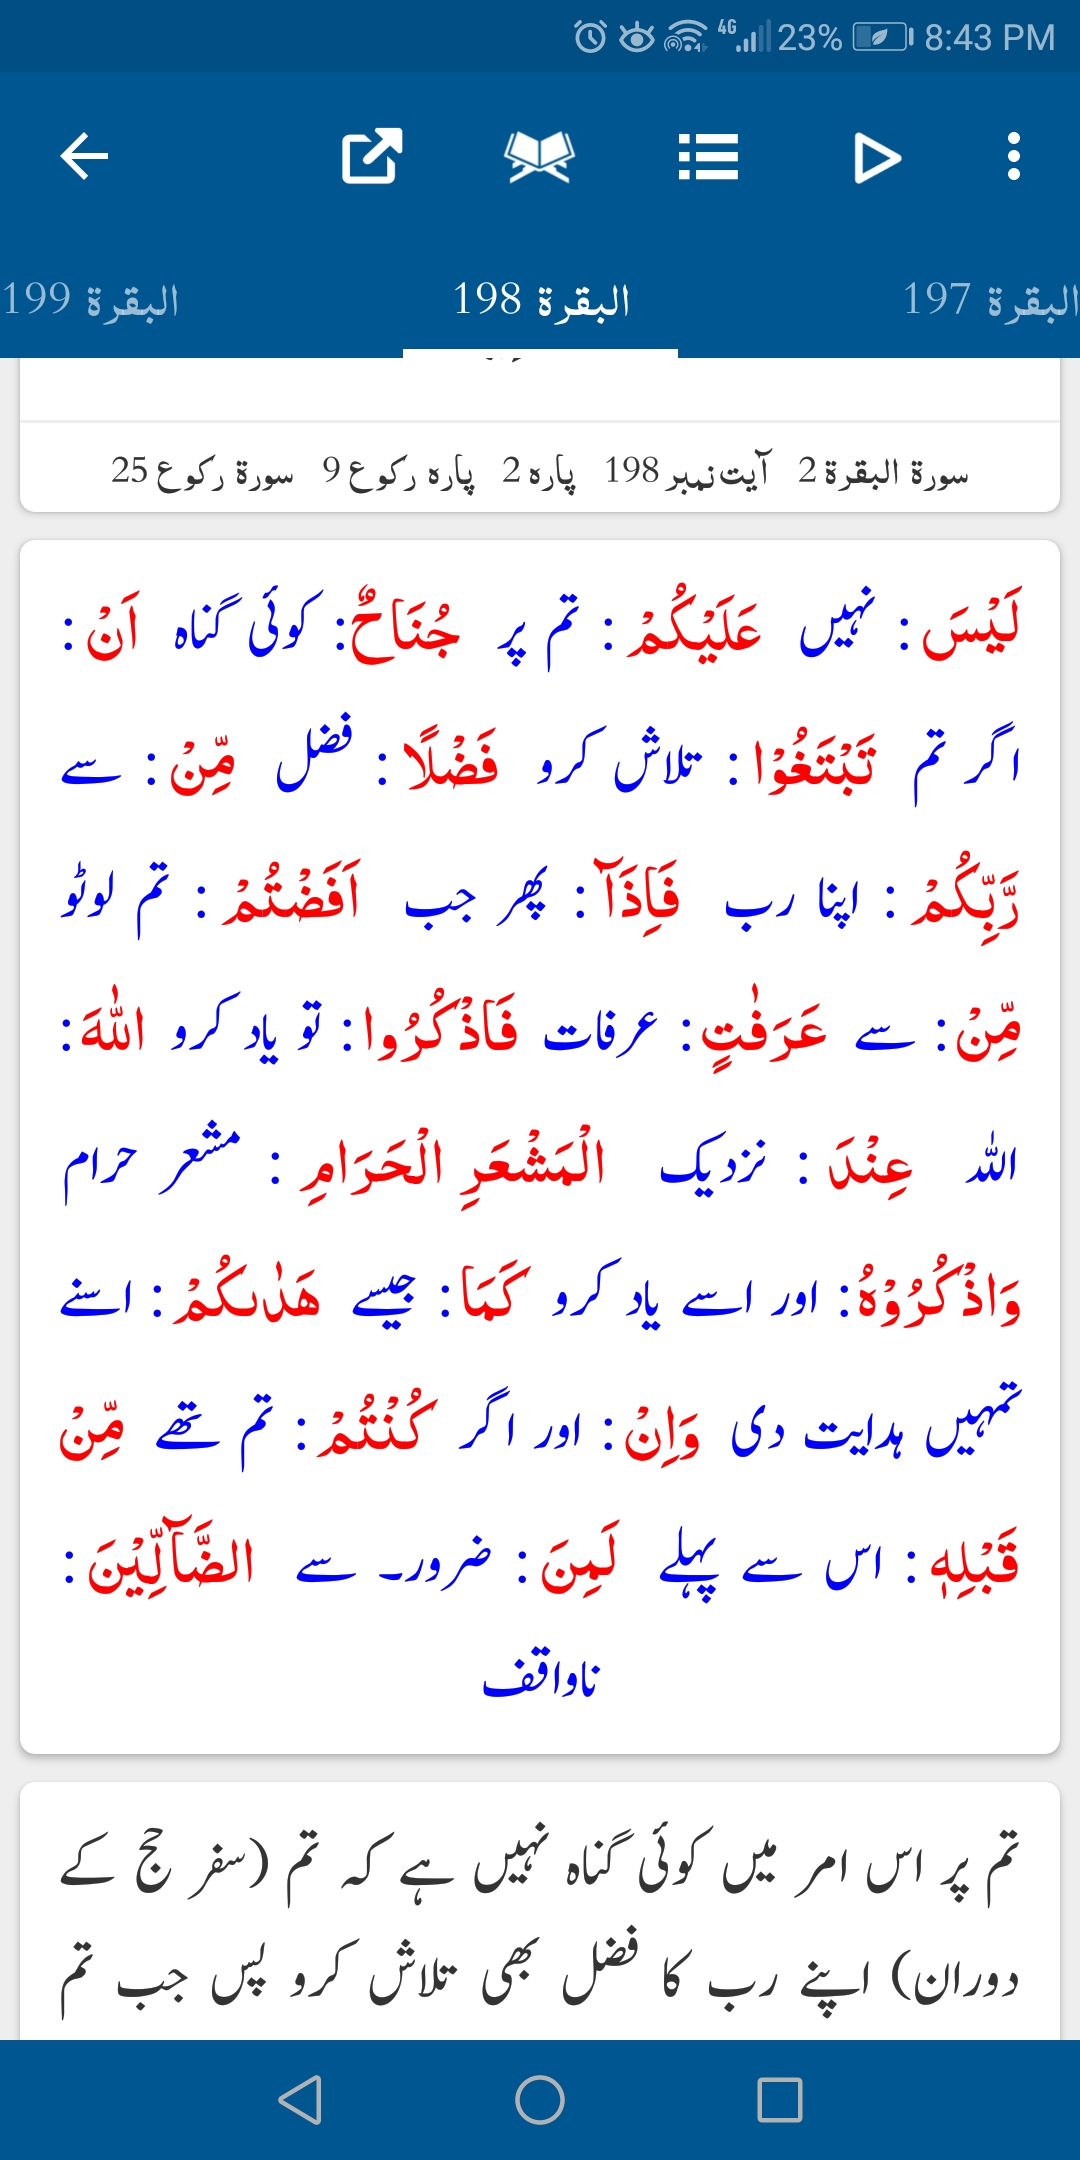 4G 23% 8:43 PM
البقرة 197
البقرة 198
البقرة 199
سورۃ البقرۃ 2 آیت نمبر 198 پارہ 2 پارہ رکوع 9 سورۃ رکوع 25
لَيْسَ : نہیں عَلَيْكُمْ : تم پر جُنَاحٌ : کوئی گناہ اَنْ :
اگر تم تَبْتَغُوْا : تلاش کرو فَضْلًا : فضل مِّنْ : سے
رَّبِّكُمْ : اپنا رب فَاِذَآ : پھر جب اَفَضْتُمْ : تم لوٹو
مِّنْ : سے عَرَفٰتٍ : عرفات فَاذْكُرُوا : تو یاد کرو اللّٰهَ :
اللہ عِنْدَ : نزدیک الْمَشْعَرِ الْحَرَامِ : مشعر حرام
وَاذْكُرُوْهُ : اور اسے یاد کرو كَمَا : جیسے ھَدٰىكُمْ : اسنے
تمہیں ہدایت دی وَاِنْ : اور اگر كُنْتُمْ : تم تھے مِّنْ
قَبْلِهٖ : اس سے پہلے لَمِنَ : ضرور۔ سے الضَّآلِّيْنَ :
ناواقف
تم پر اس امر میں کوئی گناہ نہیں ہے کہ تم (سفر حج کے
دوران) اپنے رب کا فضل بھی تلاش کرو پس جب تم